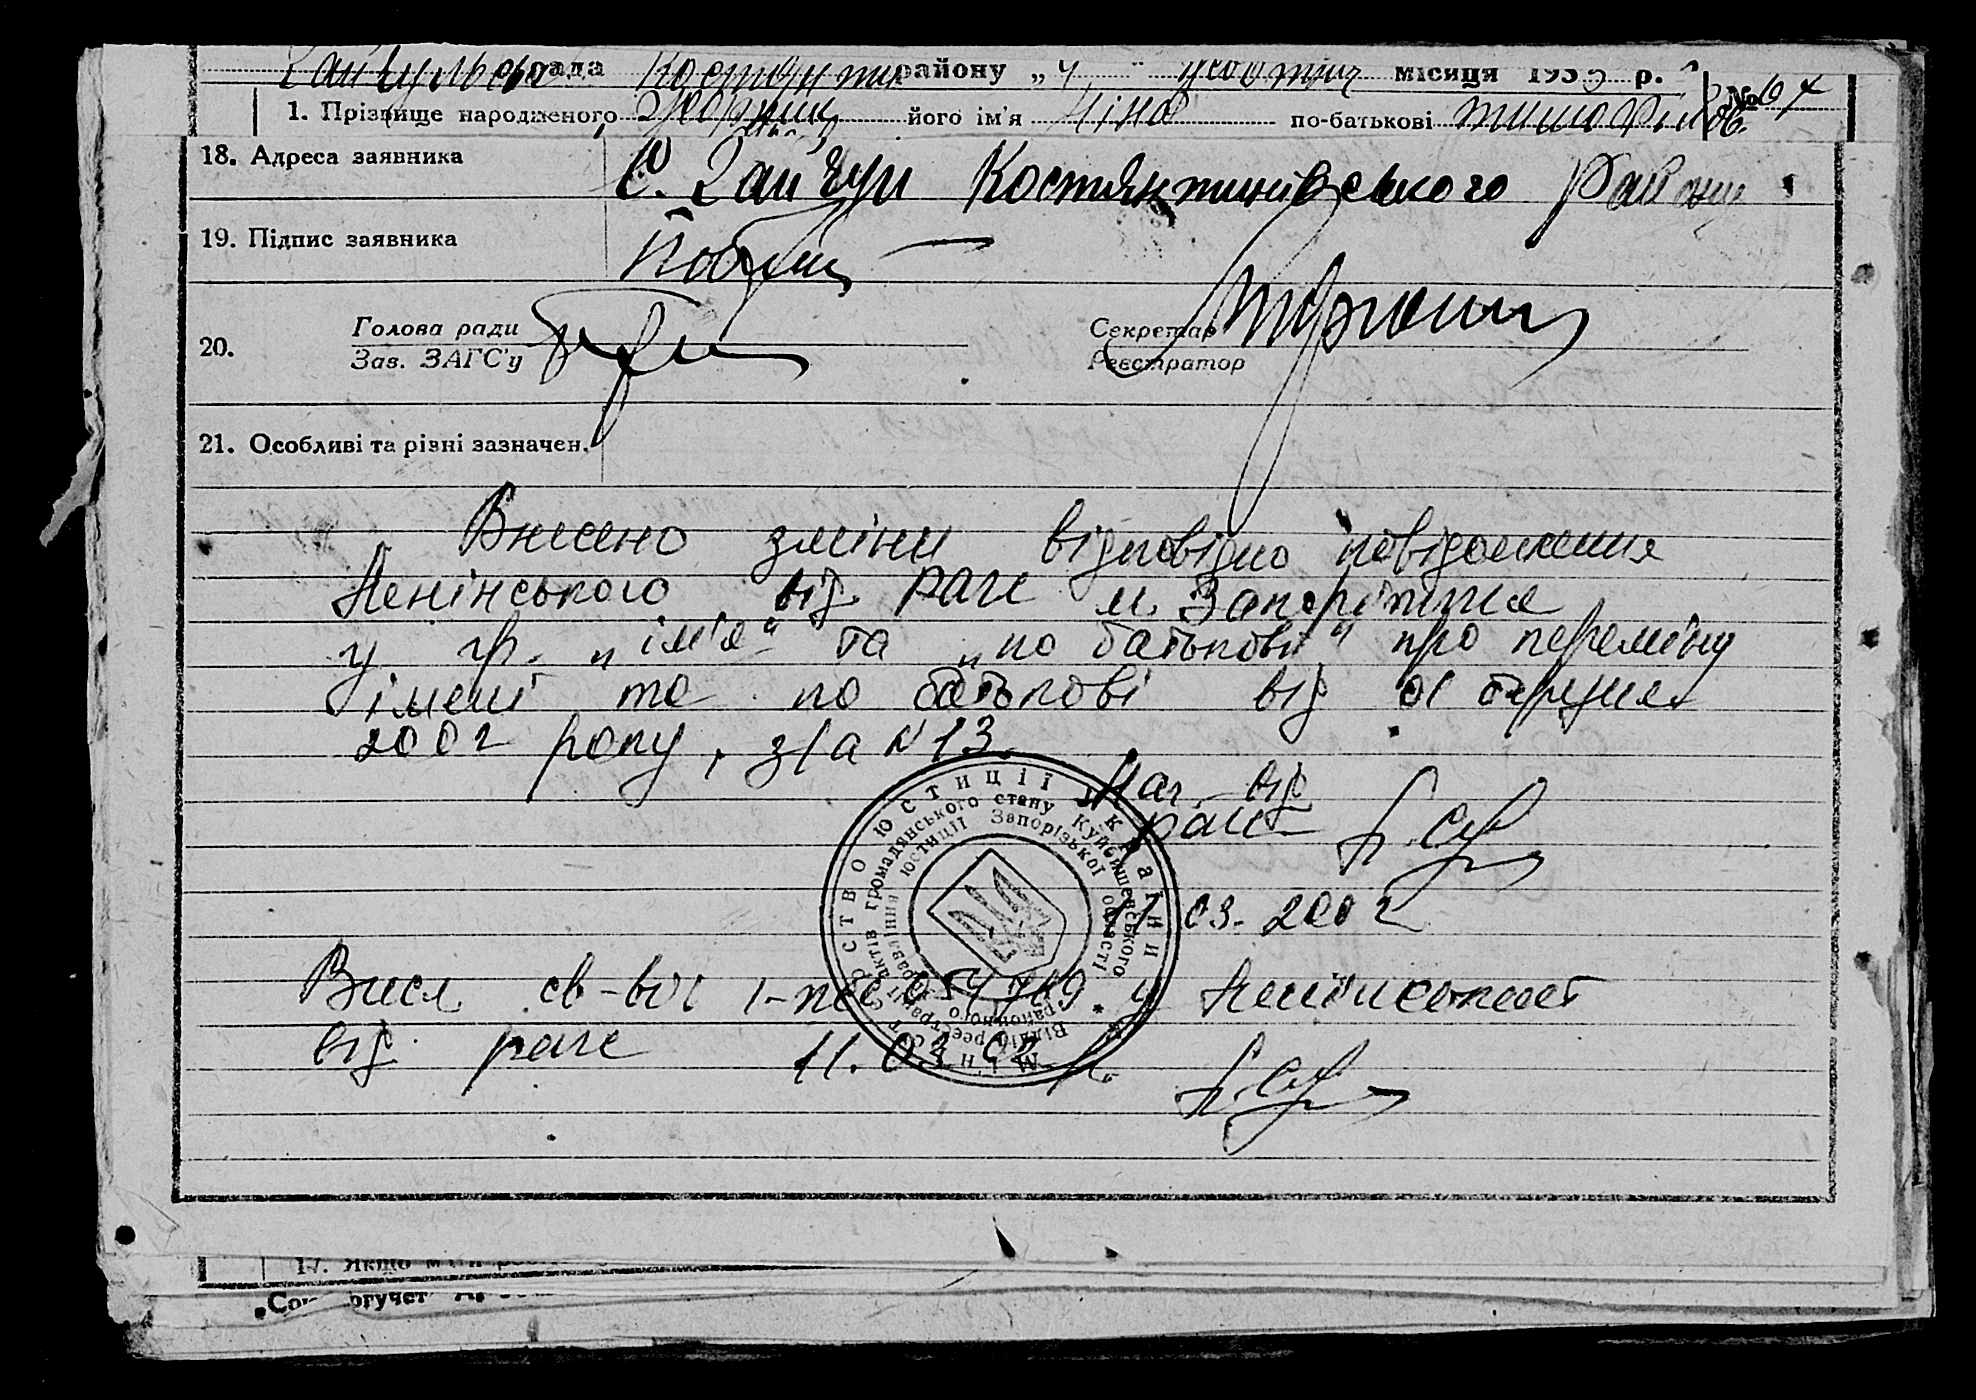 рада району „4" місяця 193 р. № 64
1. Прізвище народженого його ім'я Ніна по-батькові
18. Адреса заявника С. Гайчул Костянтинівського Району
19. Підпис заявника
20. Голова ради Секретар
Зав. ЗАГС'у Реєстратор
21. Особливі та різні зазначен.
Внесено зміни відповідно повідомлення
Ленінського від. рагс м. Запоріжжя
у гр. „ім'я" та „по батькові" про переміну
імені та по батькові від 01 березня
2002 року, з/а N 13.
Нач. від
рагс
03. 2002
Міністерство юстиції України *
Відділ реєстрації актів громадянського стану Куйбишевського
районного управління юстиції Запорізької області
св-во у Ленінському
від. рагс 11. 03. 02 р.
17. Якщо